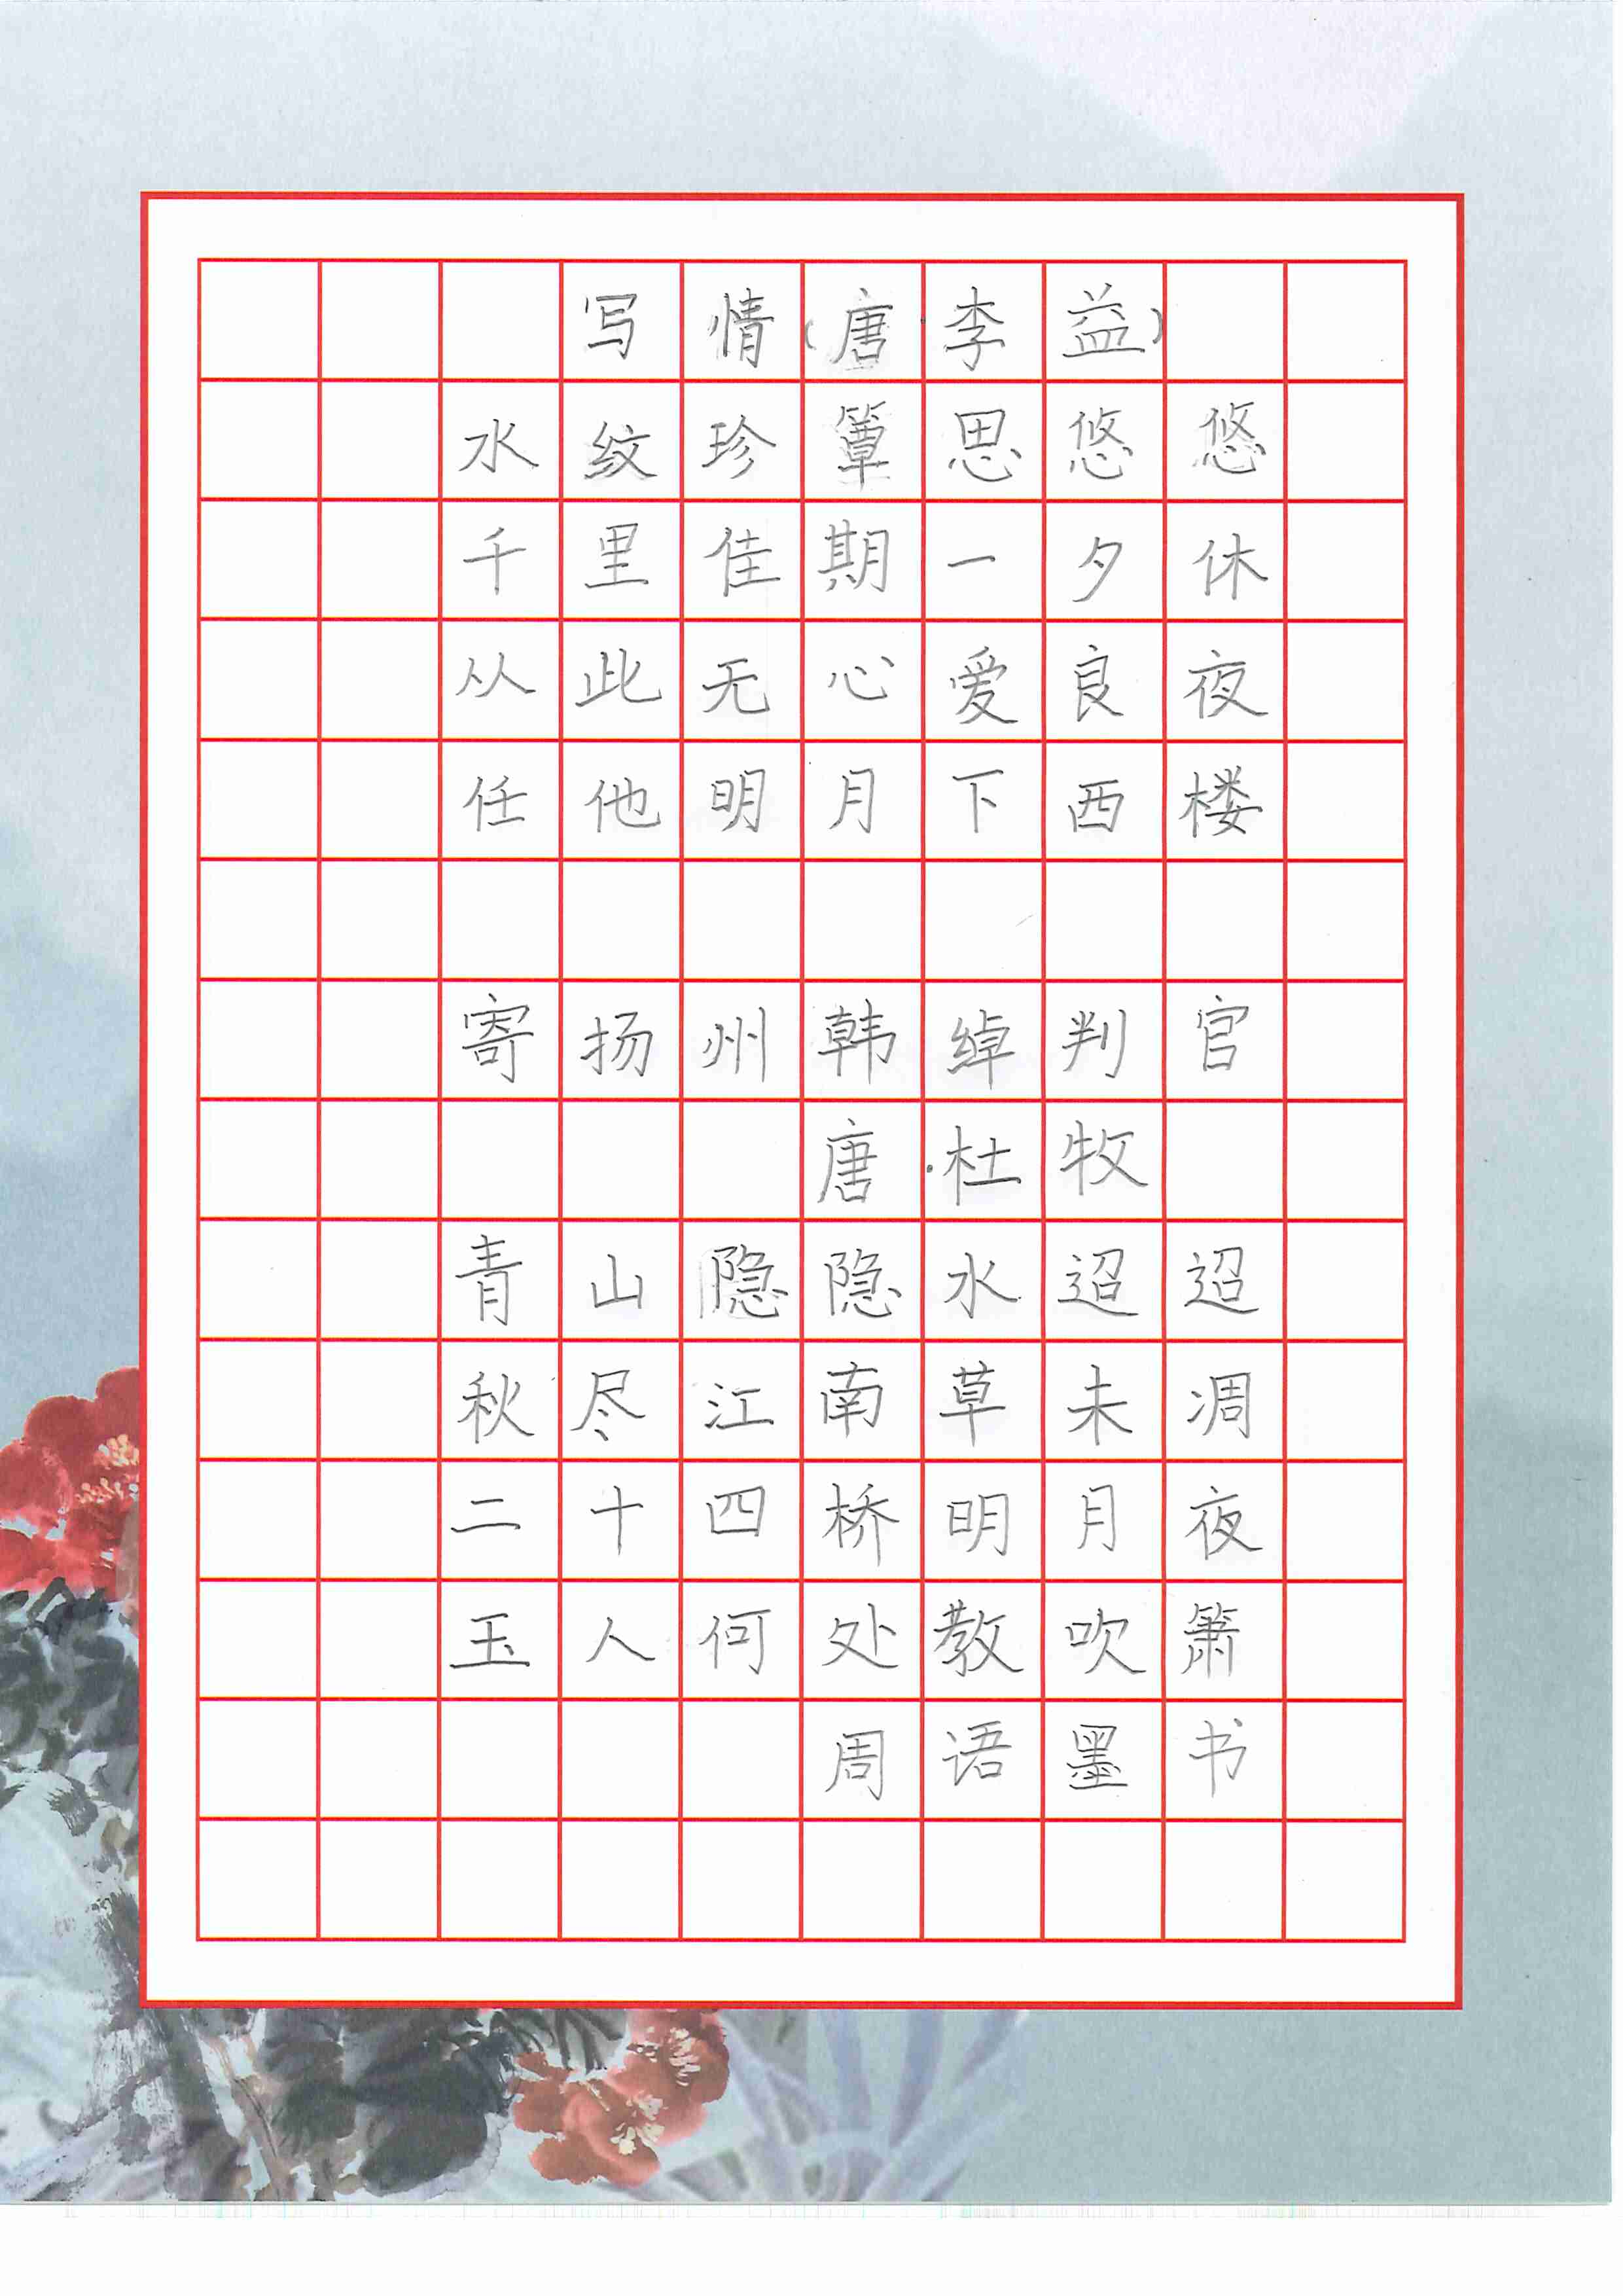 写情(唐·李益)
水纹珍簟思悠悠
千里佳期一夕休
从此无心爱良夜
任他明月下西楼
寄扬州韩绰判官
唐·杜牧
青山隐隐水迢迢
秋尽江南草未凋
二十四桥明月夜
玉人何处教吹箫
周语墨书